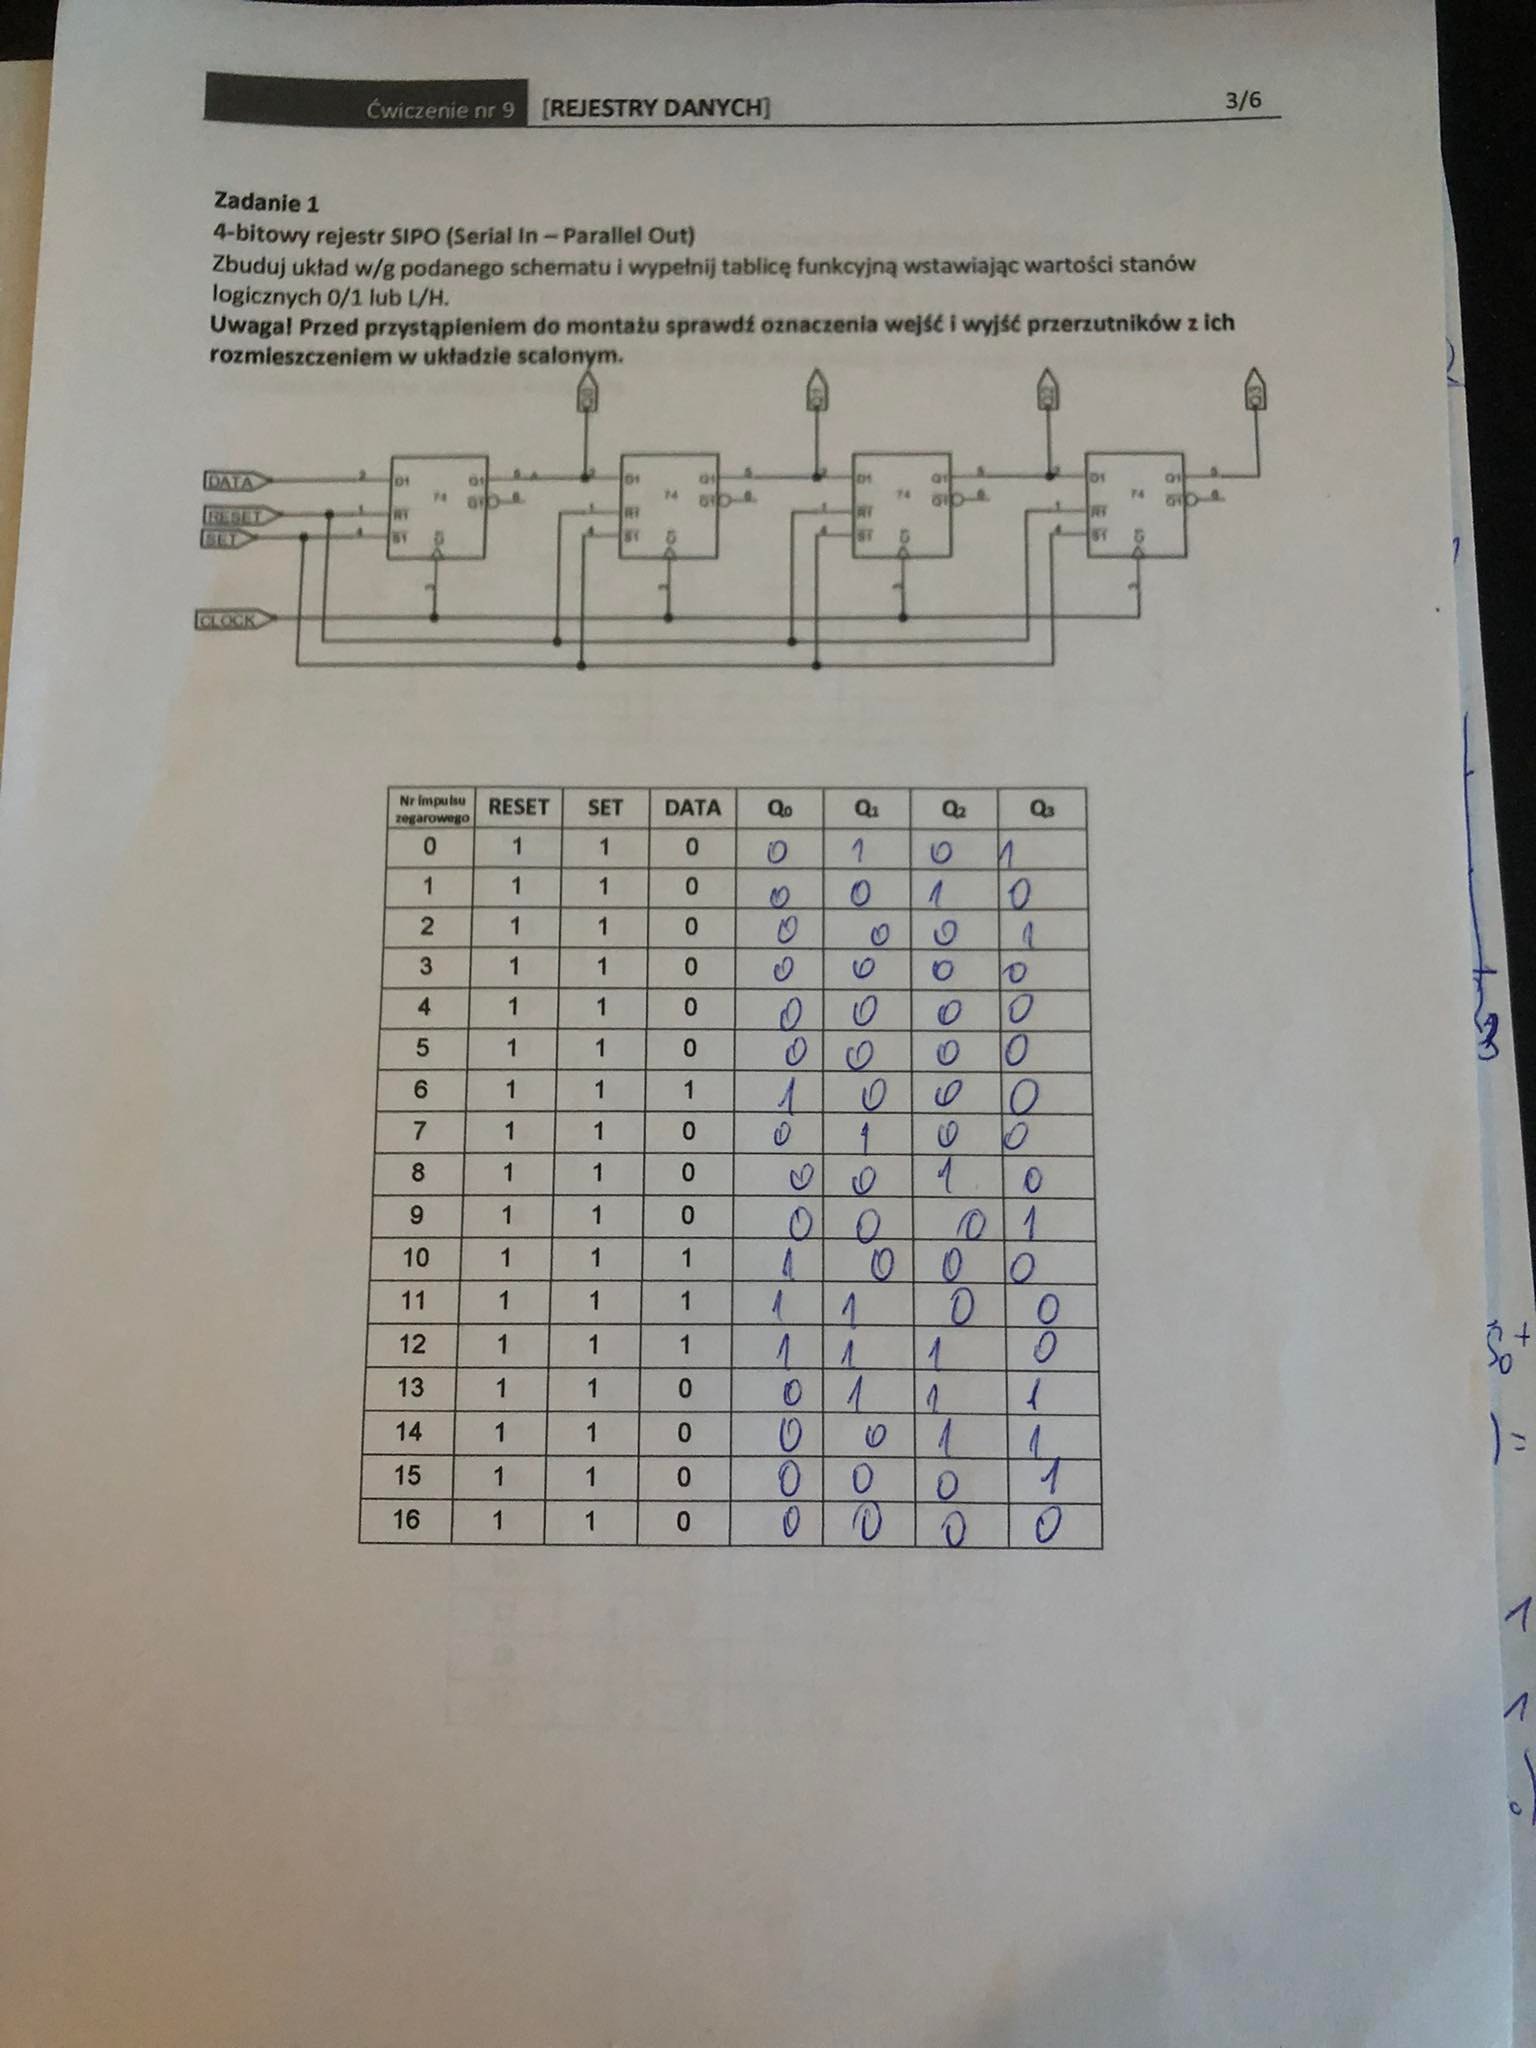 Ćwiczenie nr 9 [REJESTRY DANYCH] 3/6
Zadanie 1
4-bitowy rejestr SIPO (Serial In – Parallel Out)
Zbuduj układ w/g podanego schematu i wypełnij tablicę funkcyjną wstawiając wartości stanów
logicznych 0/1 lub L/H.
Uwaga! Przed przystąpieniem do montażu sprawdź oznaczenia wejść i wyjść przerzutników z ich
rozmieszczeniem w układzie scalonym.
DATA
RESET
SET
CLOCK
74 74 74 74
Nr impulsu zegarowego RESET SET DATA Q0 Q1 Q2 Q3
0 1 1 0 0 1 0 1
1 1 1 0 0 0 1 0
2 1 1 0 0 0 0 1
3 1 1 0 0 0 0 0
4 1 1 0 0 0 0 0
5 1 1 0 0 0 0 0
6 1 1 1 1 0 0 0
7 1 1 0 0 1 0 0
8 1 1 0 0 0 1 0
9 1 1 0 0 0 0 1
10 1 1 1 1 0 0 0
11 1 1 1 1 1 0 0
12 1 1 1 1 1 1 0
13 1 1 0 0 1 1 1
14 1 1 0 0 0 1 1
15 1 1 0 0 0 0 1
16 1 1 0 0 0 0 0